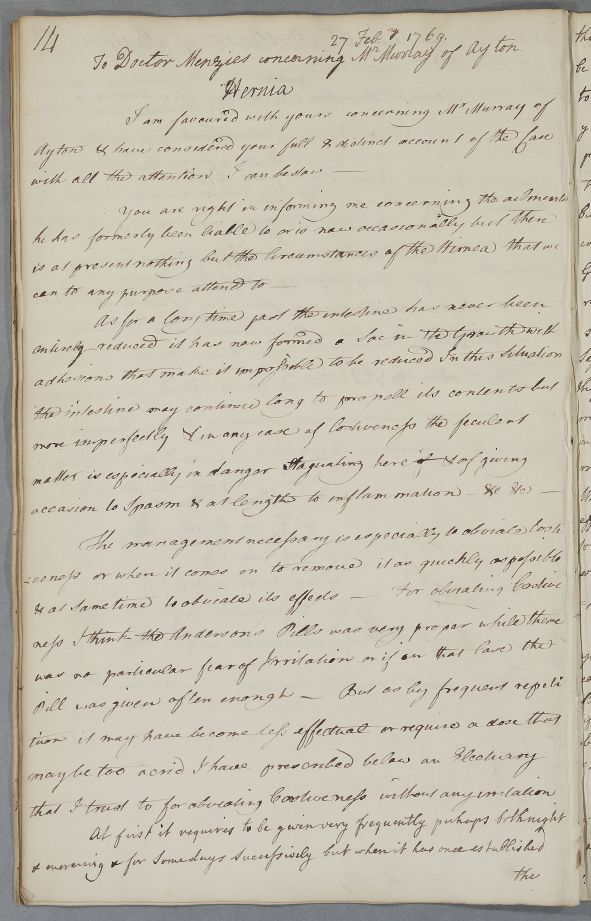 14
27 Feb.y 1769.
To Doctor Menzies concerning Mr Murray of Ayton.
Hernia
I am favoured with yours concerning Mr Murray of
Ayton & have considered your full & distinct account of the Case
with all the attention I can bestow —
You are right in informing me concerning the ailments
he has formerly been liable to or is now occasionally but there
is at present nothing but the Circumstances of the Hernea that we
can to any purpose attend to —
As for a long time past the intestine has never been
entirely reduced it has now formed a Sac in the Groin th with
adhesions that make it impossible to be reduced In this Situation
the intestine may continue long to propell its contents but
more imperfectly & in any case of Costiveness the feculent
matter is especially in danger Stagnating here if & of giving
occasion to Spasm & at length to inflammation — &c &c —
The management necessary is especially to obviate Costi
=veness or when it comes on to remove it as quickly as possible
& at same time to obviate its effects — For obviating Costive
ness I think the Andersons Pills was very proper while there
was no particular fear of Irritation or if on that Case the
Pill was given often enough — But as by frequent repeti
tion it may have become less effectual or require a dose that
may be too acrid I have prescribed below an Electuary
that I trust to for obviating Costiveness without any irritation
At first it requires to be given very frequently perhaps both night
& morning & for Some days Successively but when it has once established
the